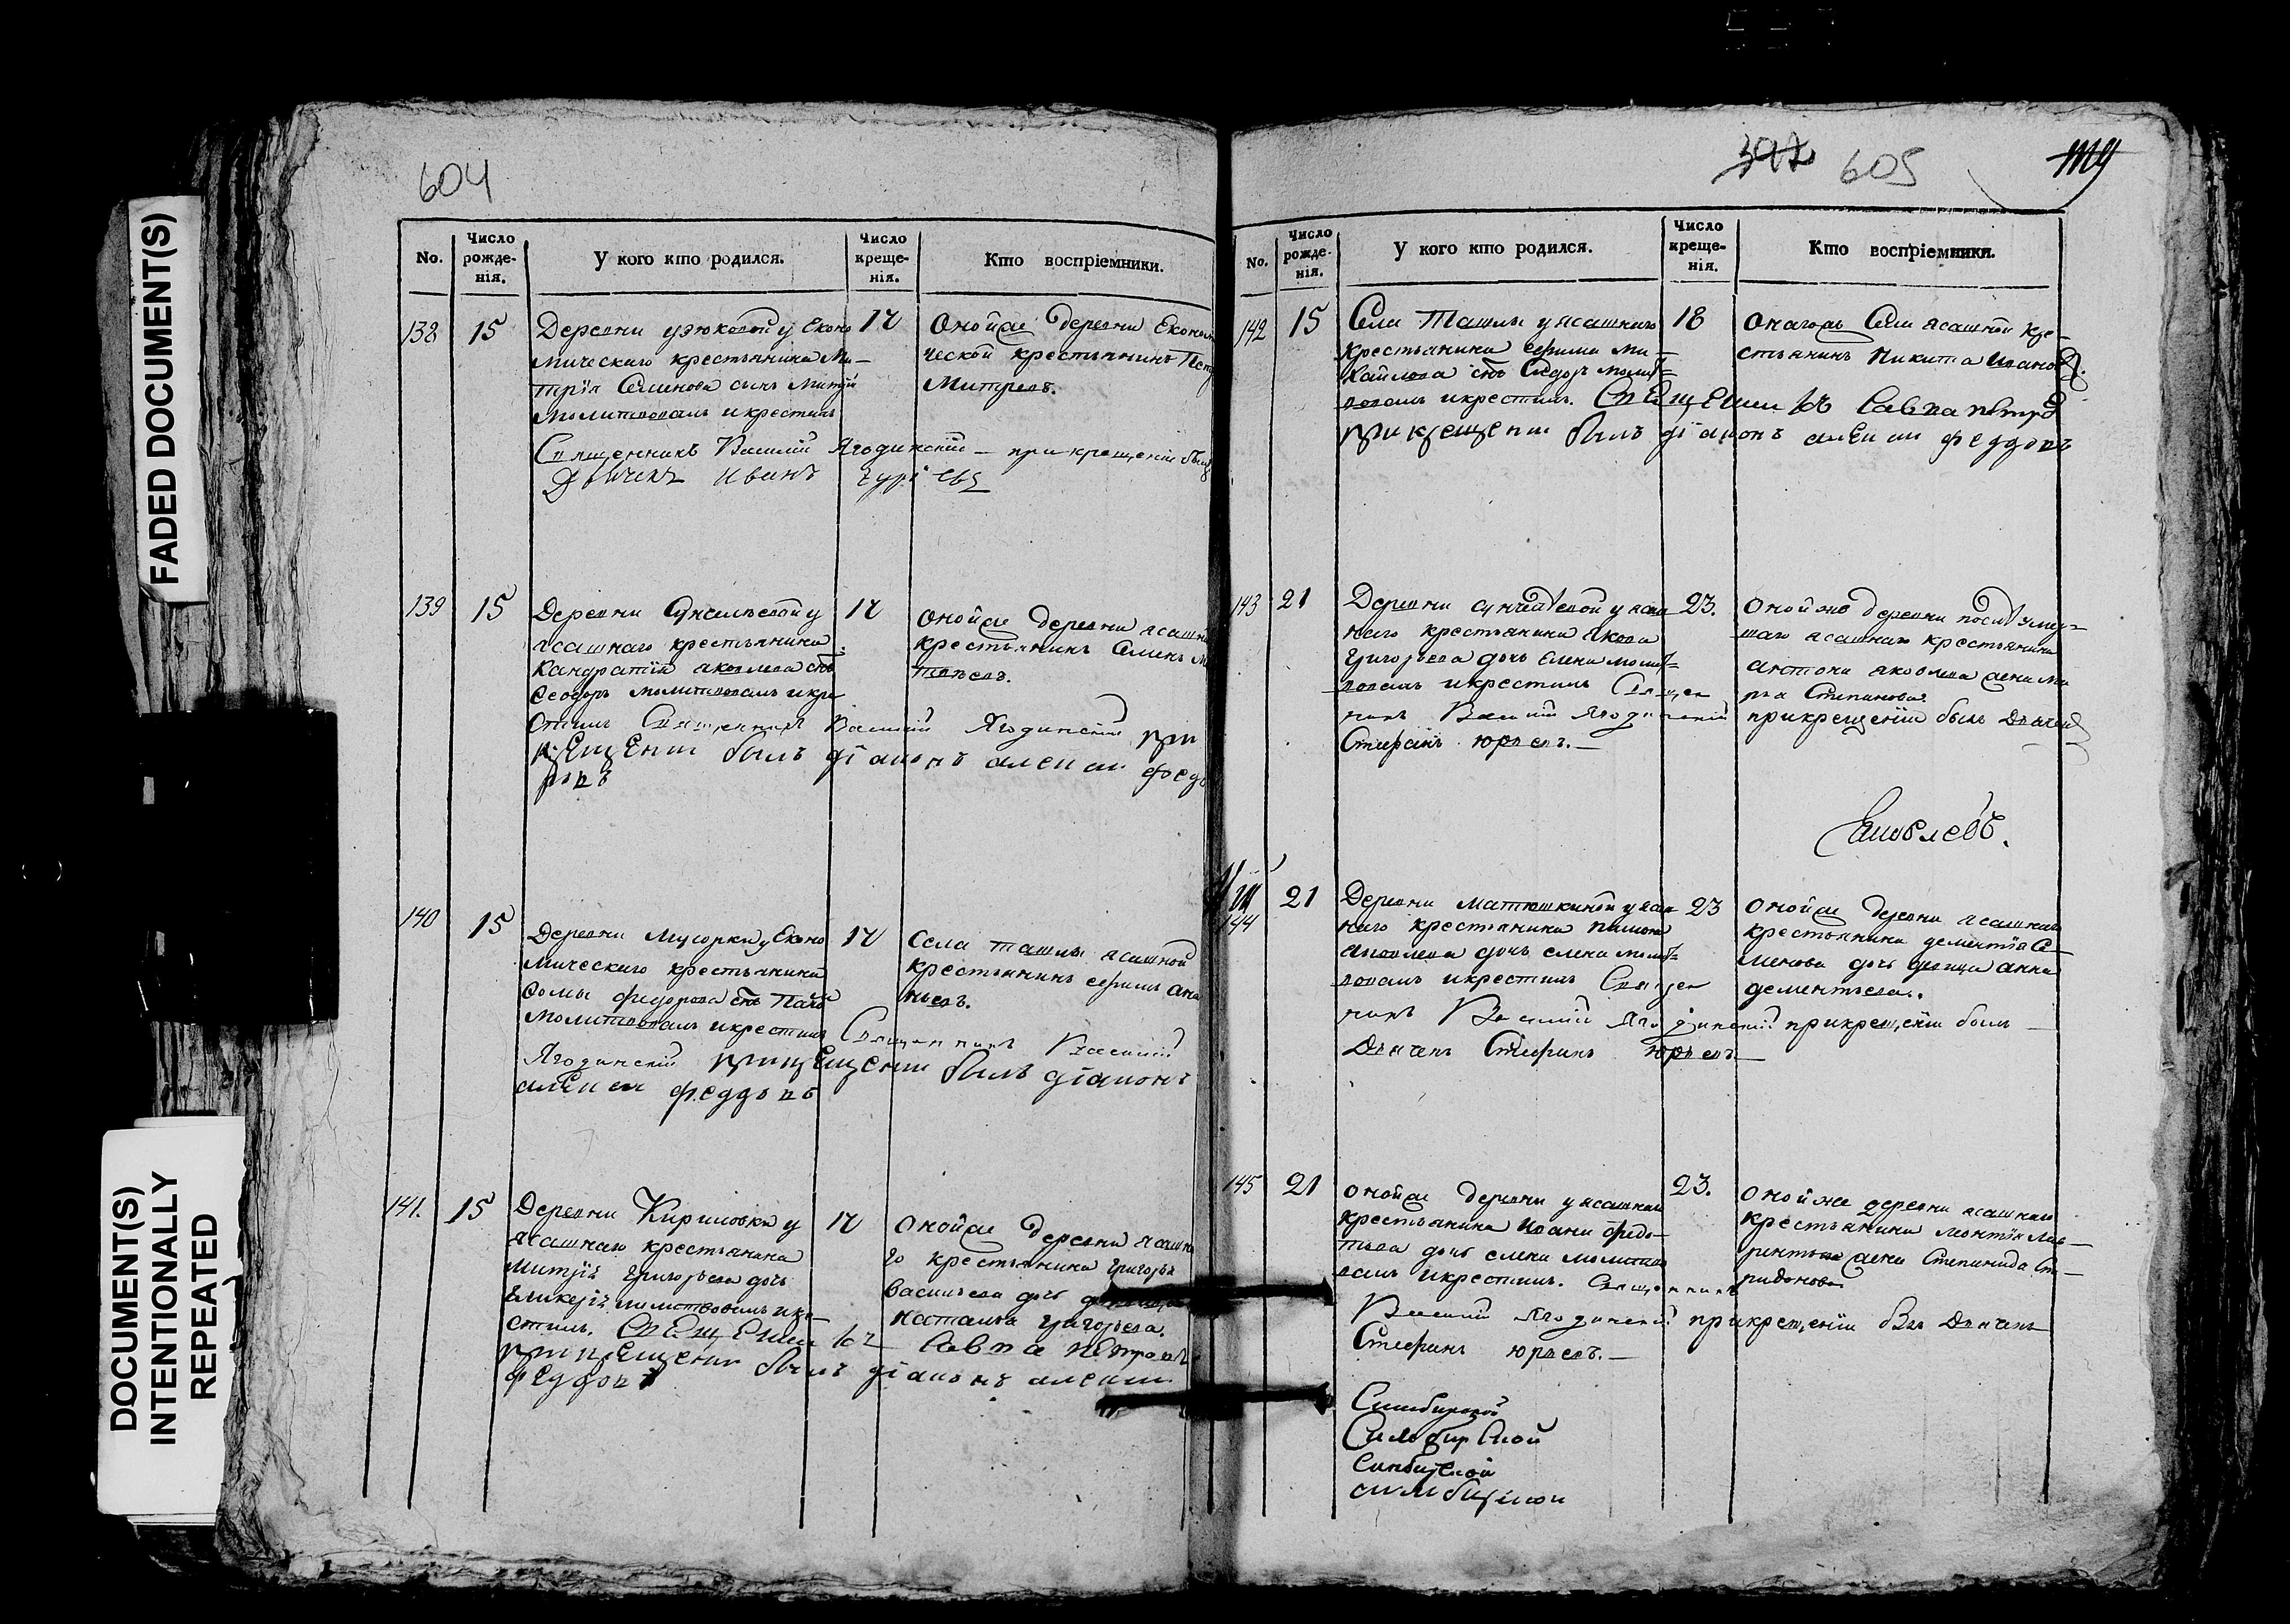 FADED DOCUMENT(S)
DOCUMENT(S)
INTENTIONALLY
REPEATED
604
No.
Число
рожде-
нія.
У кого кто родился.
Число
креще-
нія.
Кто воспріемники.
138
15
Деревни узюковой у Еконо
мическаго крестьянина Ми-
трія Семенова сынъ Митрій
молитвовалъ и крестилъ
Священникъ Василій Ягодинскій - при крещеніи былъ
Дьячекъ Иванъ
17
Оной же деревни Економи
ческой крестьянинъ Петр
Митревъ.
139
15
Деревни у
ясашнаго крестьянина
Кандратія яковлева снъ
Феодоръ молитвовалъ и кре
стилъ Священникъ Василій Ягодинскій при
крещении былъ діаконъ алексеи федо
ровъ
17
Оной же деревни ясашн
крестьянинъ Семенъ
140
15
Деревни Мусорки у Еконо
мическаго крестьянина
Фомы федорова снъ
молитвовалъ и крестилъ Священникъ Василій
Ягодинскій при крещении былъ діаконъ
алексеи феддоровъ
17
Села ташлы ясашной
крестьянинъ ефимъ
141.
15
Деревни Кириловки у
ясашнаго крестьянина
Митрія григорьева дочь
молитвовалъ и кре-
стилъ. Савва Петровъ
при крещении былъ діаконъ алексеи
феддоровъ
17
Оной же деревни ясашна
го крестьянина григорья
василева дочь
наталья григорьева.
397 605
No.
Число
рожде-
нія.
У кого кто родился.
Число
креще-
нія.
Кто воспріемники.
142
15
Села Ташлы у ясашнаго
крестьянина ефима ми-
хайлова снъ Сидоръ молит-
вовалъ и крестилъ. Савва петров
при крещении былъ діаконъ алексеи феддоровъ
18
Онагожъ Села ясашной кре-
стьянинъ Никита Иванов
143
21
Деревни у ясаш
наго крестьянина якова
григорьева дочь елена молит-
вовалъ и крестилъ Священ
никъ Василій Ягодинскій
Стефанъ юрьевъ.-
23.
Оной же деревни после умер-
шаго ясашнаго крестьянина
антона яковлева жена Ма
рья Степанова.
при крещеніи былъ Дьячек
Яковлевъ.
144
21
Деревни матюшкиной у ясаш
наго крестьянина
яковлева дочь елена молит-
вовалъ и крестилъ Священ
никъ Василій Ягодинскій при крещеніи былъ
Дьячекъ Стефанъ юрьевъ-
23
Оной же деревни ясашнаго
крестьянина дементія Се-
менова дочь девица анна
дементьева.
145
21
Оной же деревни у ясашнаго
крестьянина Ивана
дочь елена молитво
валъ и крестилъ. Священникъ
Василій Ягодинскій при крещеніи былъ Дьячекъ
Стефанъ юрьевъ.-
23.
Оной же деревни ясашнаго
крестьянина леонтія лав-
рентьева жена Степанида Спи-
ридонова
Симбирской
Симбирской
Синбирской
симбирской